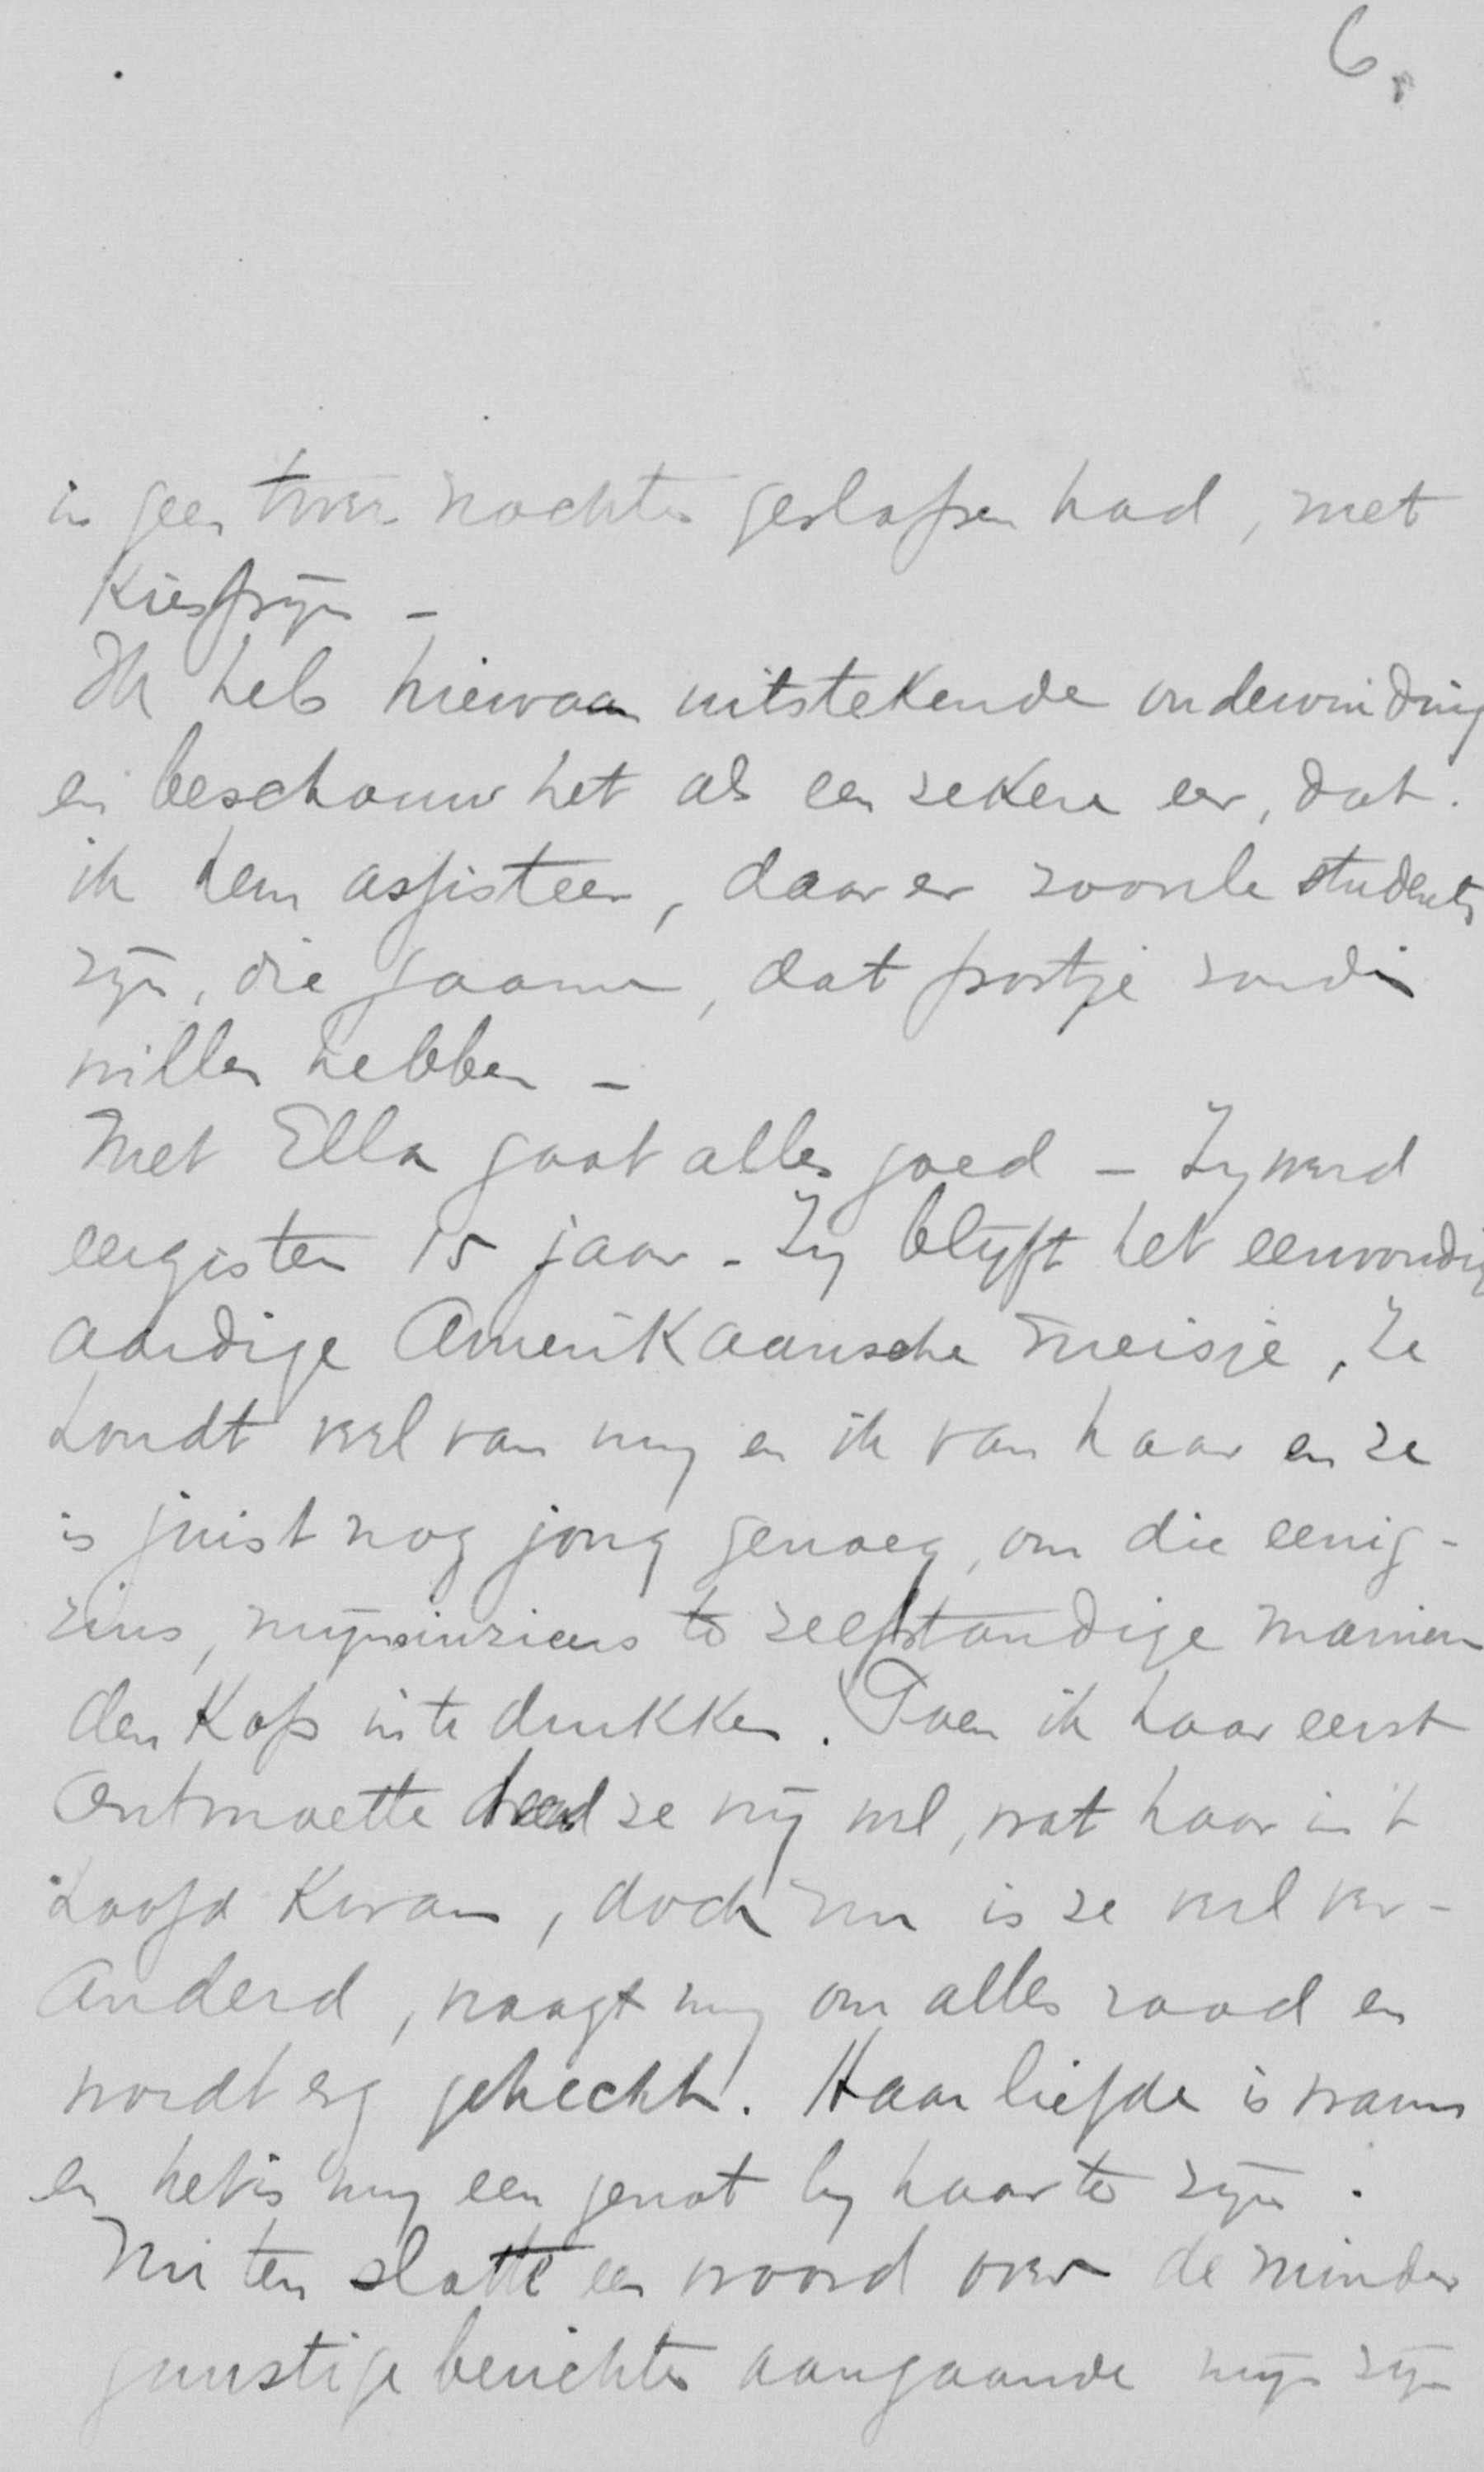 6.
in geen twee nachten geslapen had, met
Kiespijn –
Ik heb hiervan uitstekende ondervinding
en beschouw het als een zekere eer, dat
ik hem assisteer, daar er zoovele students
zijn, die gaarne, dat postje zouden
willen hebben –
Met Ella gaat alles goed – Zij werd
eergisteren 15 jaar – Zij blijft het eenvoudig
aardige Amerikaansche meisje, Ze
houdt veel van mij en ik van haar en ze
is juist nog jong genoeg, om die eenig-
zins, mijnsinziens te zelfstandige manieren
den Kop in te drukken. Toen ik haar eerst
Ontmoette deed ze mij wel, wat haar in 't
hoofd Kwam, doch nu is ze veel ver-
Anderd, vraagt mij om alles raad en
wordt erg gehecht. Haar liefde is warm
en het is mij een genot bij haar te zijn.
Nu ten slotte een woord over de minder
gunstige berichten aangaande mijn zijn